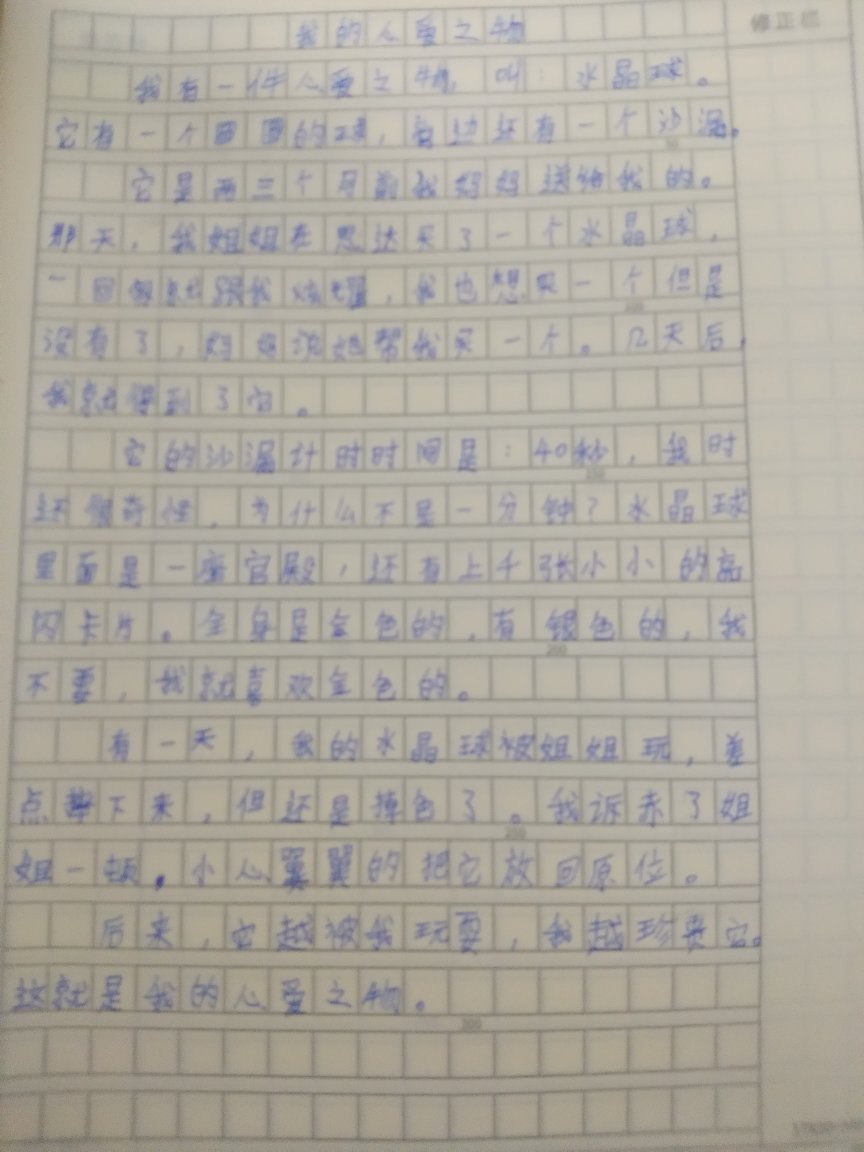 我的心爱之物
修正栏
我有一件心爱之物，叫：水晶球。
它有一个圆圆的球，右边还有一个沙漏。
它是两三个月前我妈妈送给我的。
那天，我姐姐在思达买了一个水晶球，
一回 就跟我炫耀，我也想买一个但是
没有了，妈妈说她帮我买一个。几天后，
我就得到了它。
它的沙漏计时时间是：40秒，我时
还很奇怪，为什么不是一分钟？水晶球
里面是一座宫殿，还有上千张小小的高
闪卡片。全身是金色的，有银色的，我
不要，我就喜欢金色的。
有一天，我的水晶球被姐姐玩，差
点摔下来，但还是掉色了。我诉赤了姐
姐一顿，小心翼翼的把它放回原位。
后来，它越被我玩耍，我越珍贵它。
这就是我的心爱之物。
300